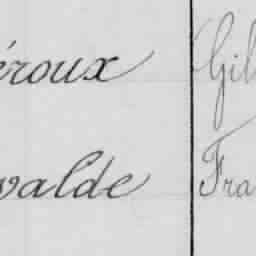 éroux Gil
valde Fra